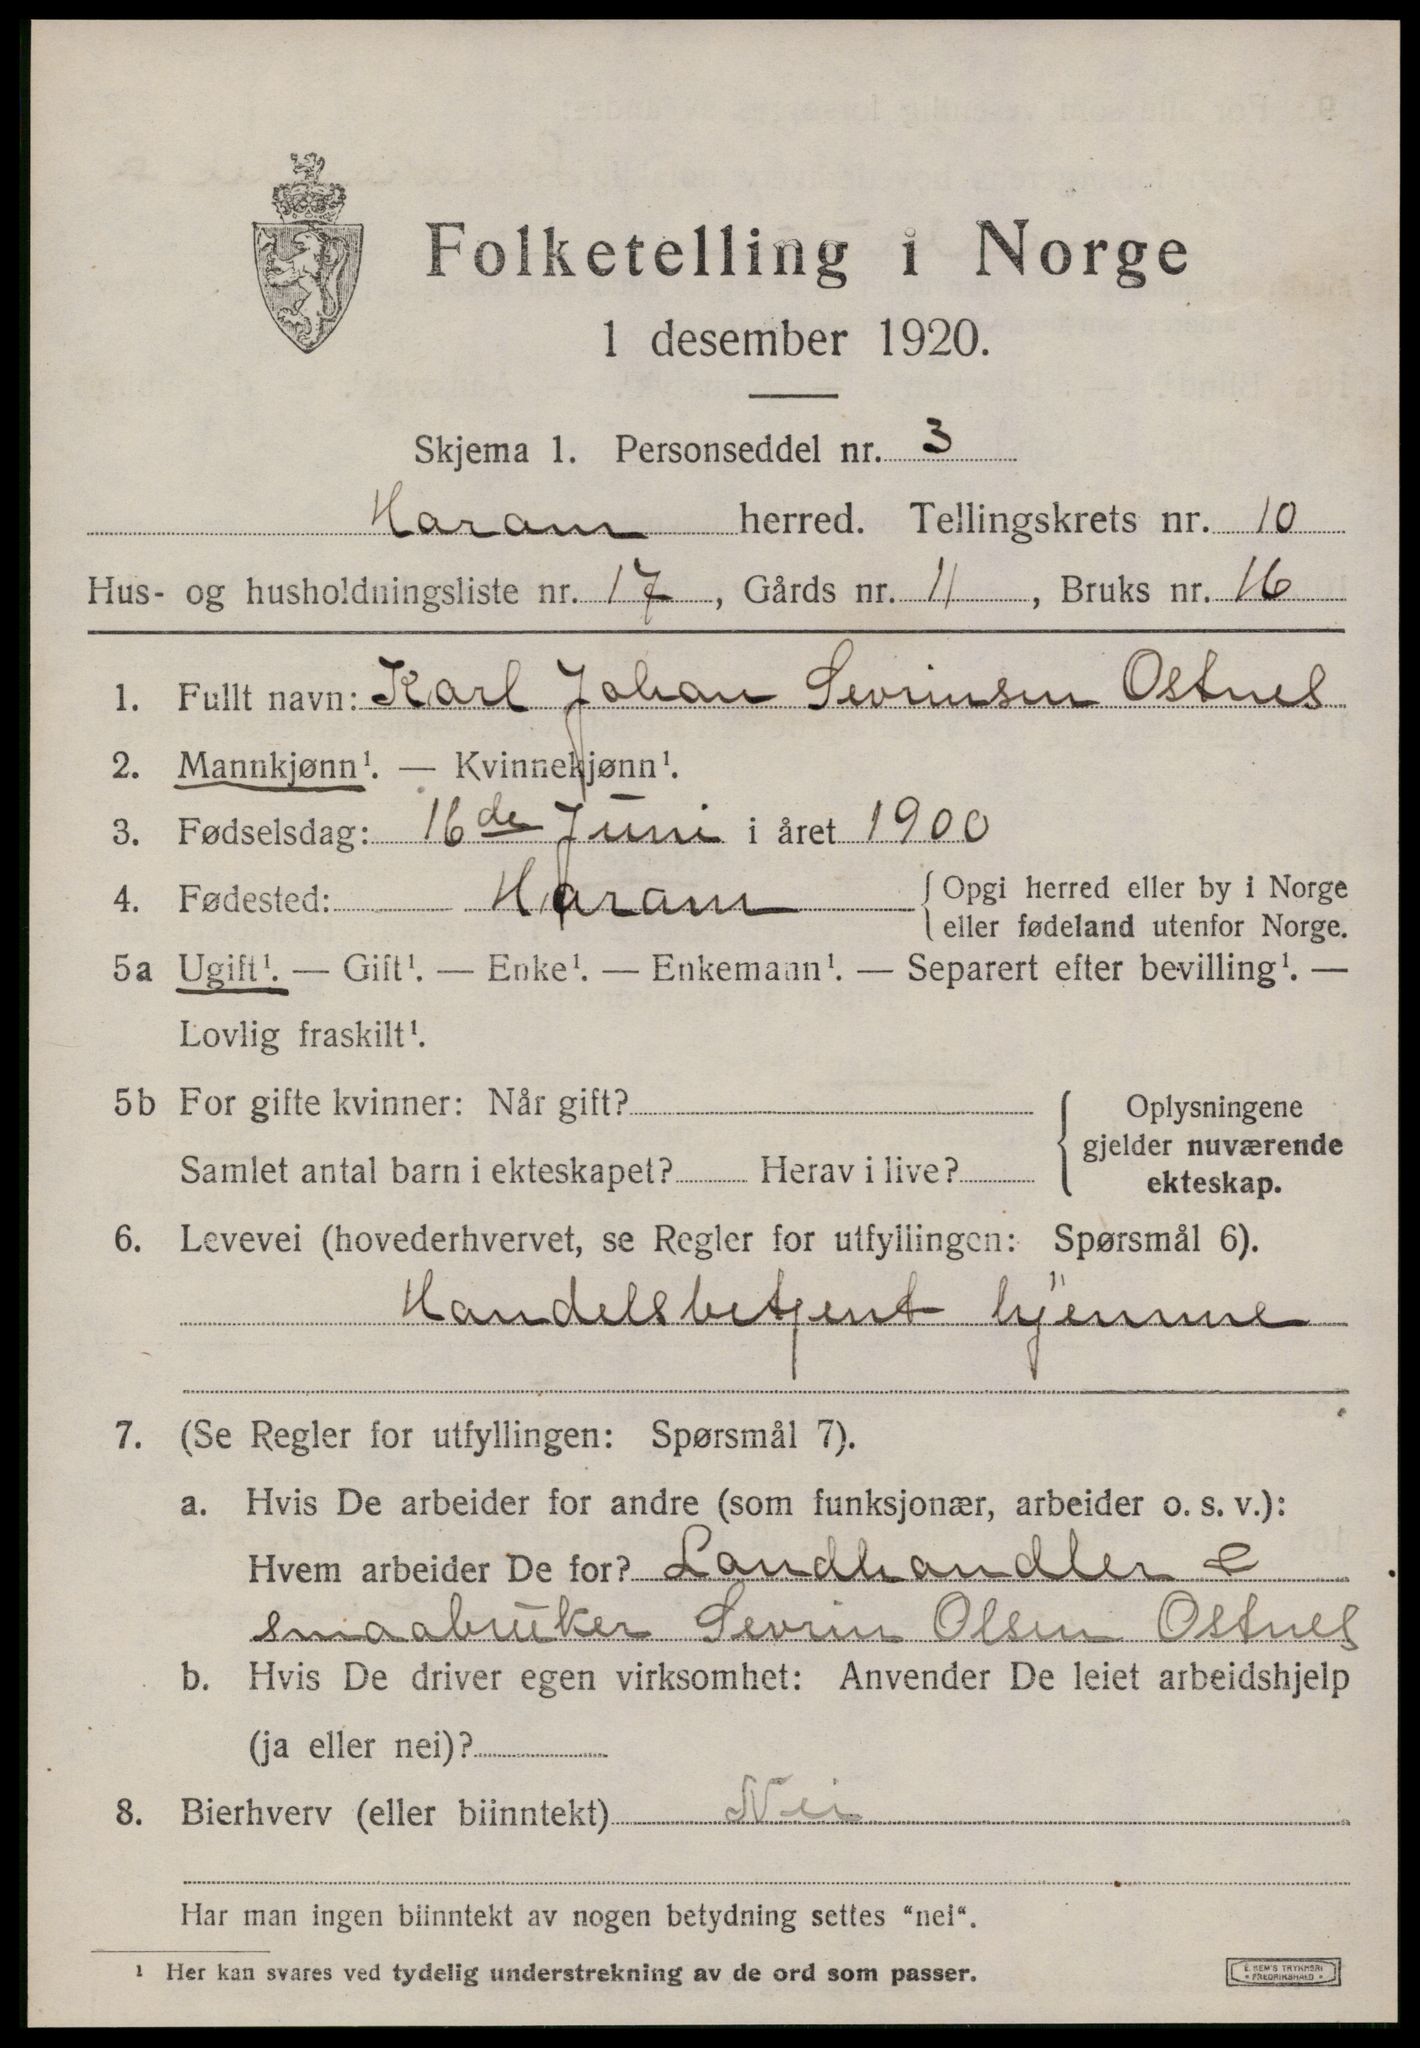 Folketelling i Norge
1 desember 1920.
Skjema 1. Personseddel nr. 3
Haram herred. Tellingskrets nr. 10
Hus- og husholdningsliste nr. 17, Gårds nr. 11, Bruks nr. 16
1. Fullt navn: Karl Johan Sevrinsen Ostnes
2. Mannkjønn¹. — Kvinnekjønn¹.
3. Fødselsdag: 16de Juni i året 1900
4. Fødested: Haram { Opgi herred eller by i Norge
eller fødeland utenfor Norge.
5a Ugift¹. — Gift¹. — Enke¹. — Enkemann¹. — Separert efter bevilling¹. —
Lovlig fraskilt¹.
5b For gifte kvinner: Når gift?
Samlet antal barn i ekteskapet? Herav i live?
Oplysningene
gjelder nuværende
ekteskap.
6. Levevei (hovederhvervet, se Regler for utfyllingen: Spørsmål 6).
Handelsbetjent hjemme
7. (Se Regler for utfyllingen: Spørsmål 7).
a. Hvis De arbeider for andre (som funksjonær, arbeider o. s. v.):
Hvem arbeider De for? Landhandler &
smaabruker Sevrin Olsen Ostnes
b. Hvis De driver egen virksomhet: Anvender De leiet arbeidshjelp
(ja eller nei)?
8. Bierhverv (eller biinntekt) Nei
Har man ingen biinntekt av nogen betydning settes "nei".
¹ Her kan svares ved tydelig understrekning av de ord som passer.
E. SEM'S TRYKKERI
FREDRIKSHALD